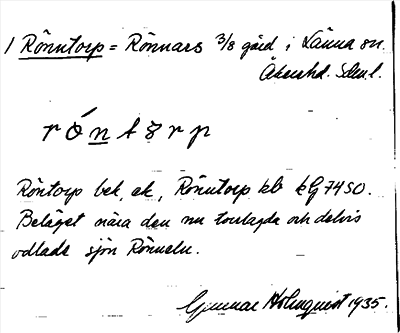 1 Rönntorp = Rönnars 3/8 gård i Länna sn.
Åkershd. Sdml.
röntårp
Röntorp bek, ek, Rönntorp kb kG 7450.
Beläget nära den nu torrlagda och delvis
odlade sjön Rönneln.
Gunnar Holmquist 1935.